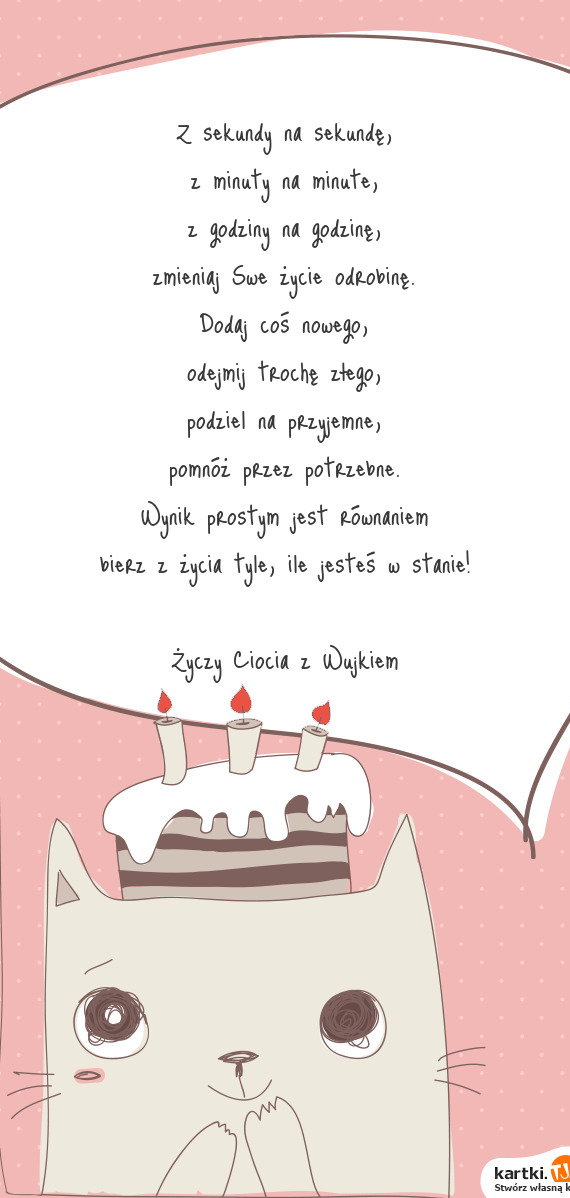 Z sekundy na sekundę,
z minuty na minute,
z godziny na godzinę,
zmieniaj Swe życie odrobinę.
Dodaj coś nowego,
odejmij trochę złego,
podziel na przyjemne,
pomnóż przez potrzebne.
Wynik prostym jest równaniem
bierz z życia tyle, ile jesteś w stanie!
Życzy Ciocia z Wujkiem
kartki.TJ
Stwórz własną k